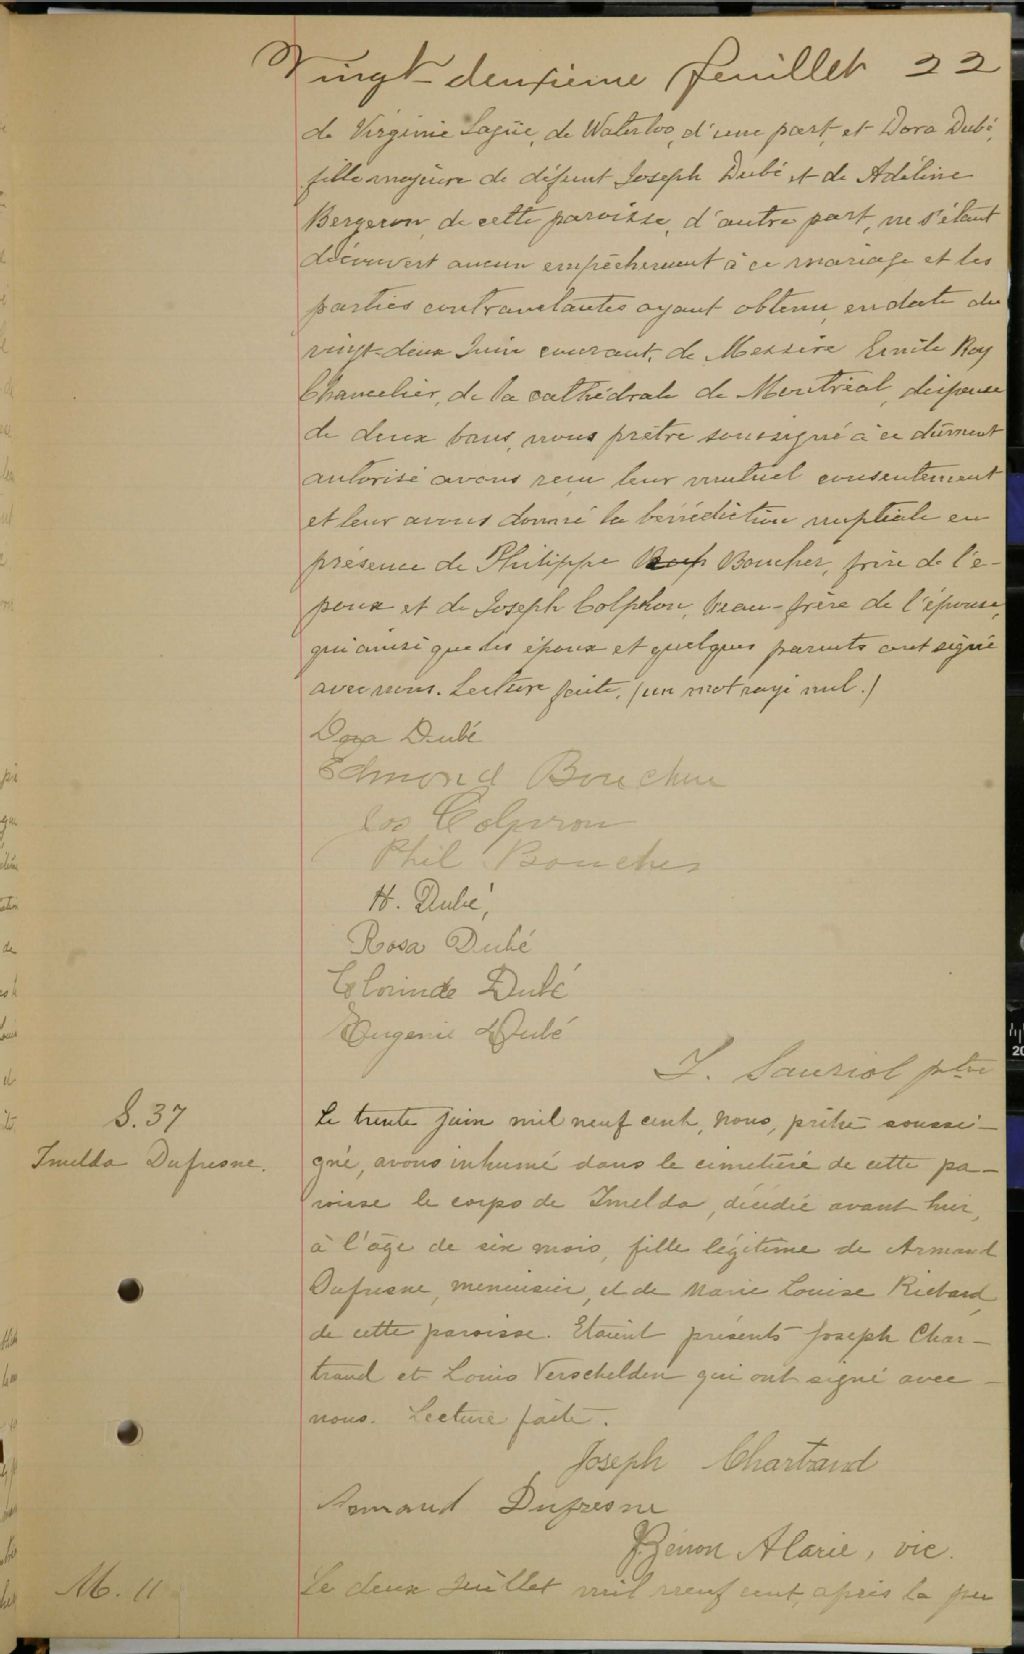 Vingt-deuxième feuillet 22
de Virginie Lagüe, de Waterloo, d'une part, et Dora Dubé,
fille majeure de défunt Joseph Dubé et de Adéline
Bergeron, de cette paroisse, d'autre part, ne s'étant
découvert aucun empêchement à ce mariage et les
parties contractantes ayant obtenu, en date du
vingt-deux Juin courant, de Messire Emile Roy
Chancelier, de la cathédrale de Montréal, dispense
de deux bans, nous prêtre soussigné à ce dûment
autorisé avons reçu leur mutuel consentement
et leur avons donné la bénédiction nuptiale en
présence de Philippe Boucher, frère de l'é-
poux et de Joseph Colpron, beau-frère de l'épouse,
qui ainsi que les époux et quelques parents ont signé
avec nous. Lecture faite. (un mot rayé nul.)
Dora Dubé
Edmond Boucher
Jos Colpron
Phil Boucher
H. Dubé,
Rosa Dubé
Clorinde Dubé
Eugenie Dubé
J. Lauriol ptre
S. 37
Imelda Dufresne.
Le trente juin mil neuf cent, nous, prêtre soussi-
gné, avons inhumé dans le cimetière de cette pa-
roisse le corps de Imelda, décédée avant hier,
à l'âge de six mois, fille légitime de Armand
Dufresne, menuisier, et de Marie Louise Richard,
de cette paroisse. Etaient présents Joseph Char-
trand et Louis Verschelden qui ont signé avec
nous. Lecture faite.
Joseph Chartrand
Armand Dufresne
Alarie, vic.
M. 11
Le deux Juillet mil neuf cent, après la pu